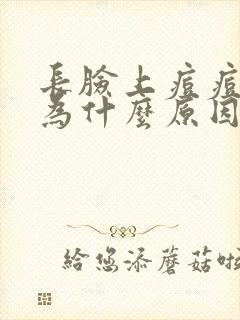 長臉上痘痘
為什麼原因
給您添蘑菇啦